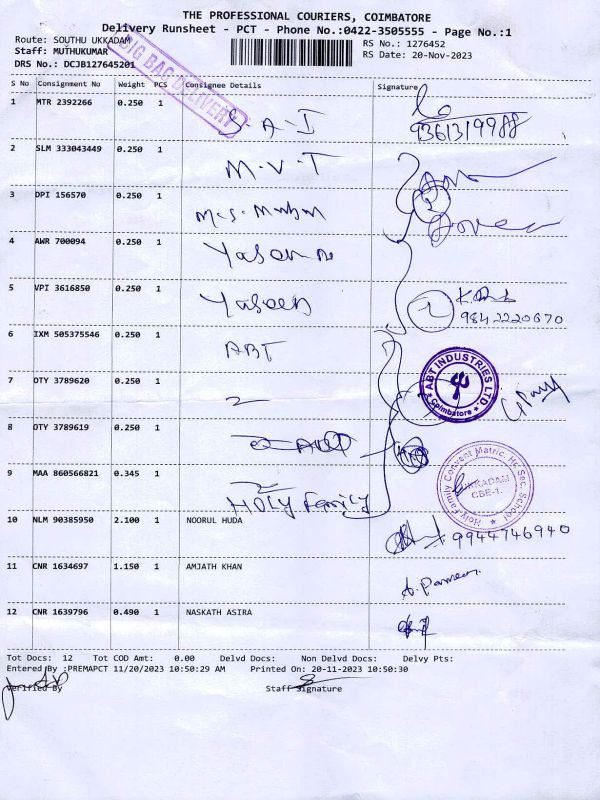 THE PROFESSIONAL COURIERS, COIMBATORE
Delivery Runsheet - PCT - Phone No.:0422-3505555 - Page No.:1
Route: SOUTHU UKKADAM
RS No.: 1276452
Staff: MUTHUKUMAR
RS Date: 20-Nov-2023
DRS No.: DCJB127645201
BIG BAG DELIVERY
S No Consignment No Weight PCS Consignee Details Signature
1 MTR 2392266 0.250 1 S.A.I
9361319988
2 SLM 333043449 0.250 1 M.V.T
3 DPI 156570 0.250 1 M.S.
4 AWR 700094 0.250 1
5 VPI 3616850 0.250 1 Yaseen
9842220670
6 IXM 505375546 0.250 1 ABT
ABT INDUSTRIES LTD.
Coimbatore
7 OTY 3789620 0.250 1
8 OTY 3789619 0.250 1
9 MAA 860566821 0.345 1 HOLY Family
Holy Family Convent Matric. Hr. Sec. School
UKKADAM
CBE-1.
10 NLM 90385950 2.100 1 NOORUL HUDA 9944746940
11 CNR 1634697 1.150 1 AMJATH KHAN
12 CNR 1639796 0.490 1 NASKATH ASIRA
Tot Docs: 12 Tot COD Amt: 0.00 Delvd Docs: Non Delvd Docs: Delvy Pts:
Entered By :PREMAPCT 11/20/2023 10:50:29 AM Printed On: 20-11-2023 10:50:30
Verified By Staff Signature